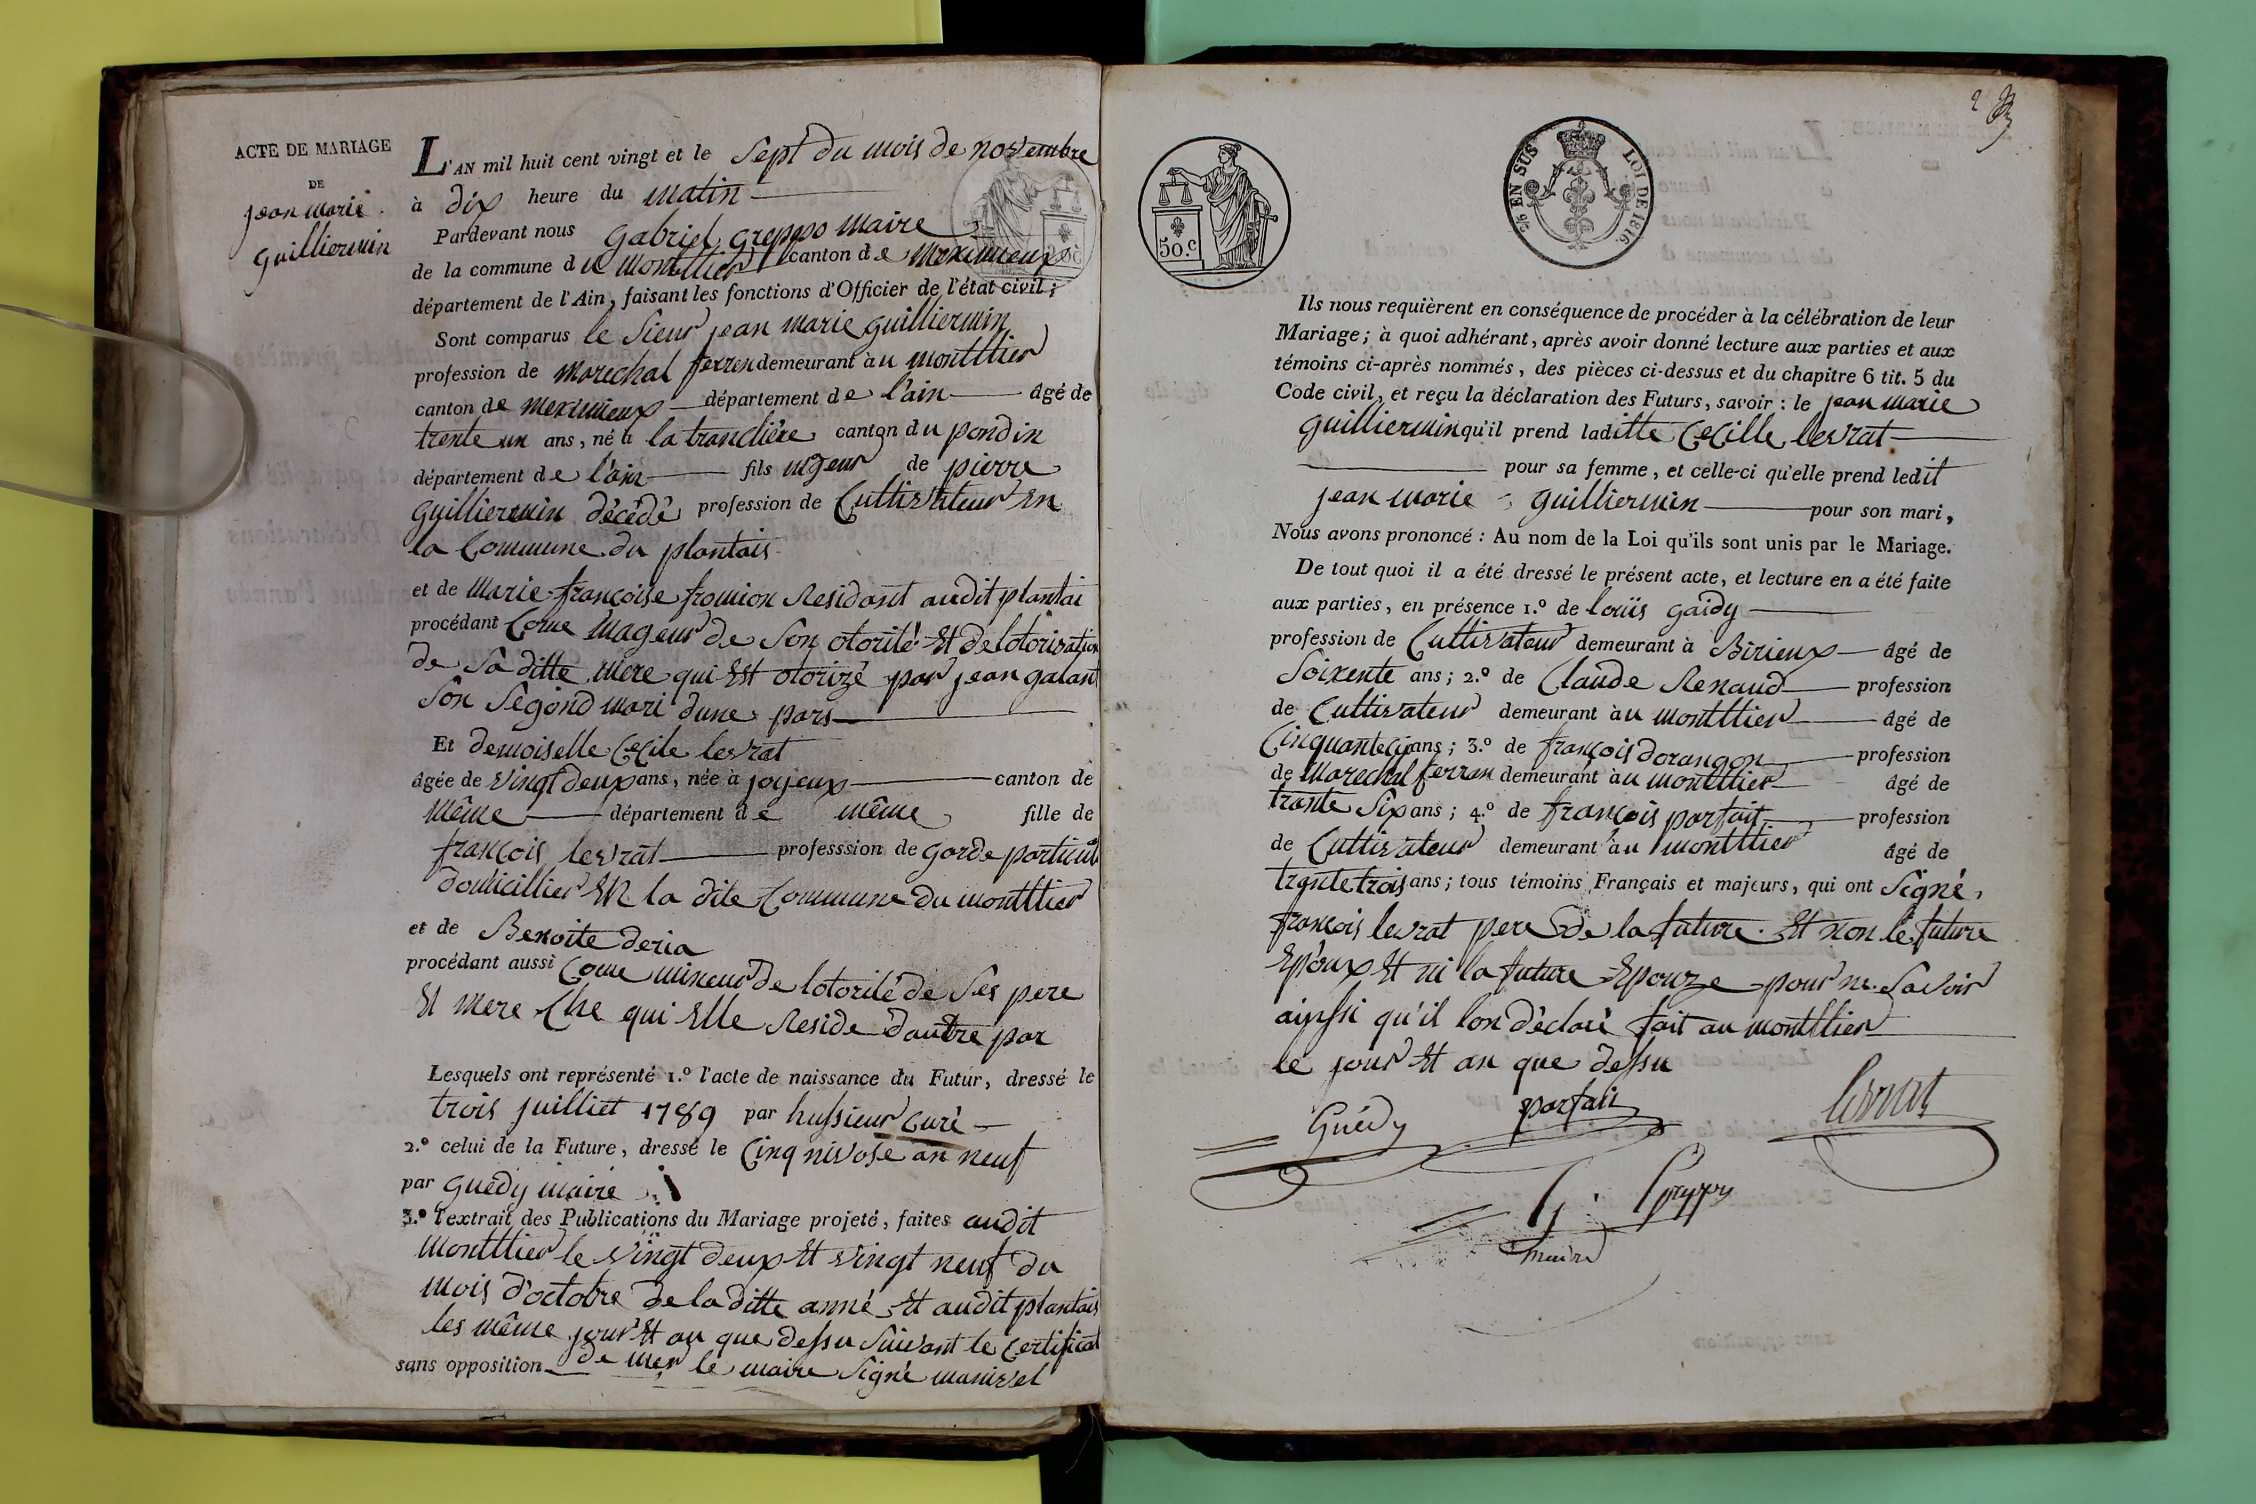 ACTE DE MARIAGE
DE
jean marie
Guilliermin
L'AN mil huit cent vingt et le Sept du mois de novembre
à dix heure du matin
Pardevant nous gabriel greppo maire
de la commune du montllier canton de meximieux
département de l'Ain, faisant les fonctions d'Officier de l'état civil;
Sont comparus le Sieur jean marie guilliermin
profession de marechal ferren demeurant àu montllier
canton de meximieux département de l'ain âgé de
trente un ans, né à la trancliere canton du pondin
département de l'ain fils majeur de pierre
guilliermin décédé profession de Cultivateur En
la Commune du plantais
et de marie françoise fromion Residant audit plantai
procédant Come mageur de Son otorité Et de lotorisation
de Sa ditte mere qui Est otorizé par jean galant
Son Segond mari dune pars
Et demoiselle Cecile levrat
âgée de vingt deux ans, née à joyeux canton de
même département de même fille de
françois levrat professsion de garde particul
domicillier En la dite Commune du montllier
et de Benoite deria
procédant aussi Come mineur de lotorité de Ses pere
Et mere Che qui Elle Reside d'autre par
Lesquels ont représenté 1.º l'acte de naissance du Futur, dressé le
trois juilliet 1789 par hussieur Curé
2.º celui de la Future, dressé le Cinq nivose an neuf
par guédy maire
3.º l'extrait des Publications du Mariage projeté, faites audit
montllier le vingt deux Et vingt neuf du
mois d'octobre de la ditte anné Et audit plantais
les même jour Et an que dessu Suivant le Certificat
sans opposition de mer le maire Signé manivel
50.c
2/6 EN SUS
LOI DE 1816.
2
Ils nous requièrent en conséquence de procéder à la célébration de leur
Mariage; à quoi adhérant, après avoir donné lecture aux parties et aux
témoins ci-après nommés, des pièces ci-dessus et du chapitre 6 tit. 5 du
Code civil, et reçu la déclaration des Futurs, savoir: le jean marie
guilliermin qu'il prend laditte Cecille levrat
pour sa femme, et celle-ci qu'elle prend ledit
jean marie guilliermin pour son mari,
Nous avons prononcé: Au nom de la Loi qu'ils sont unis par le Mariage.
De tout quoi il a été dressé le présent acte, et lecture en a été faite
aux parties, en présence 1.º de loüis gaidy
profession de Cultivateur demeurant à Birieux âgé de
Soixente ans; 2.º de Claude Renaud profession
de Cultivateur demeurant àu montllier âgé de
Cinquante ans; 3.º de françois dorangon profession
de marechal ferran demeurant àu montllier âgé de
trante Six ans; 4.º de françois parfait profession
de Cultivateur demeurant àu montllier âgé de
trante trois ans; tous témoins Français et majeurs, qui ont Signé,
françois levrat pere de la future. Et non le future
Epoux Et ni la future Epouze pour ne Savoir
ainssi qu'il lon déclaré fait au montllier
le jour Et an que dessu
Guédy
parfait
levrat
G. Greppo
maire